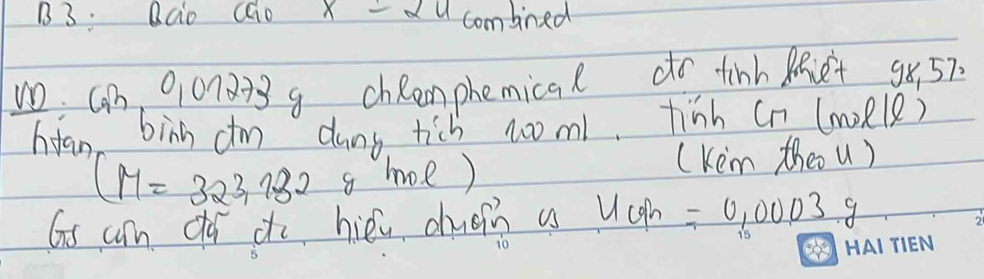 B3: Báo cáo x - 2u combined
VD: Cân 0,01273 g chloramphenicol độ tinh khiết 98,5%
htan, bình đm dung tích 100 ml. Tính Cm (mol/l)
(M = 323,132 g/mol) (kèm theo u)
Gs cân đã đc hiệu chuẩn có U cân = 0,0003 g
5 10 15 2
HAI TIEN